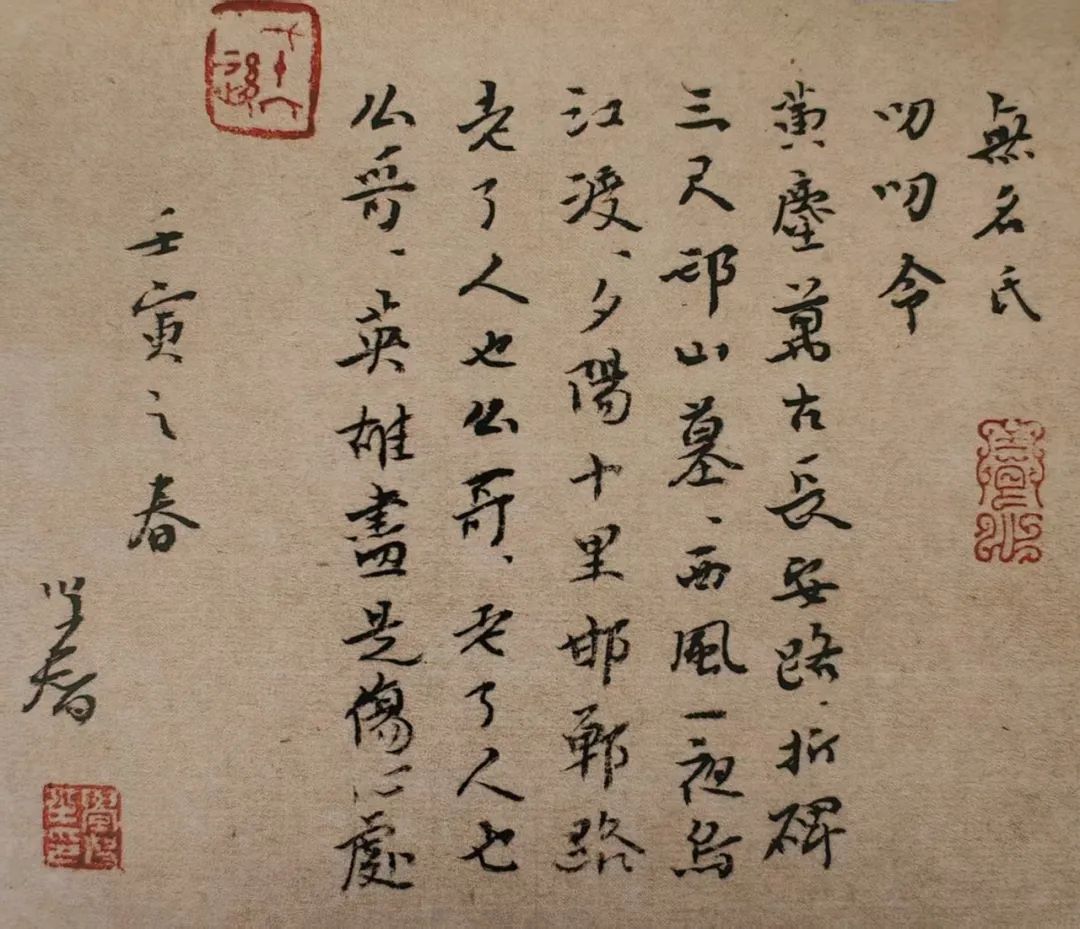 無名氏
叨叨令
黄塵萬古長安路、折碑
三尺邙山墓、西風一夜烏
江渡、夕陽十里邯鄲路
老了人也么哥、老了人也
么哥、英雄盡是傷心處
壬寅之春